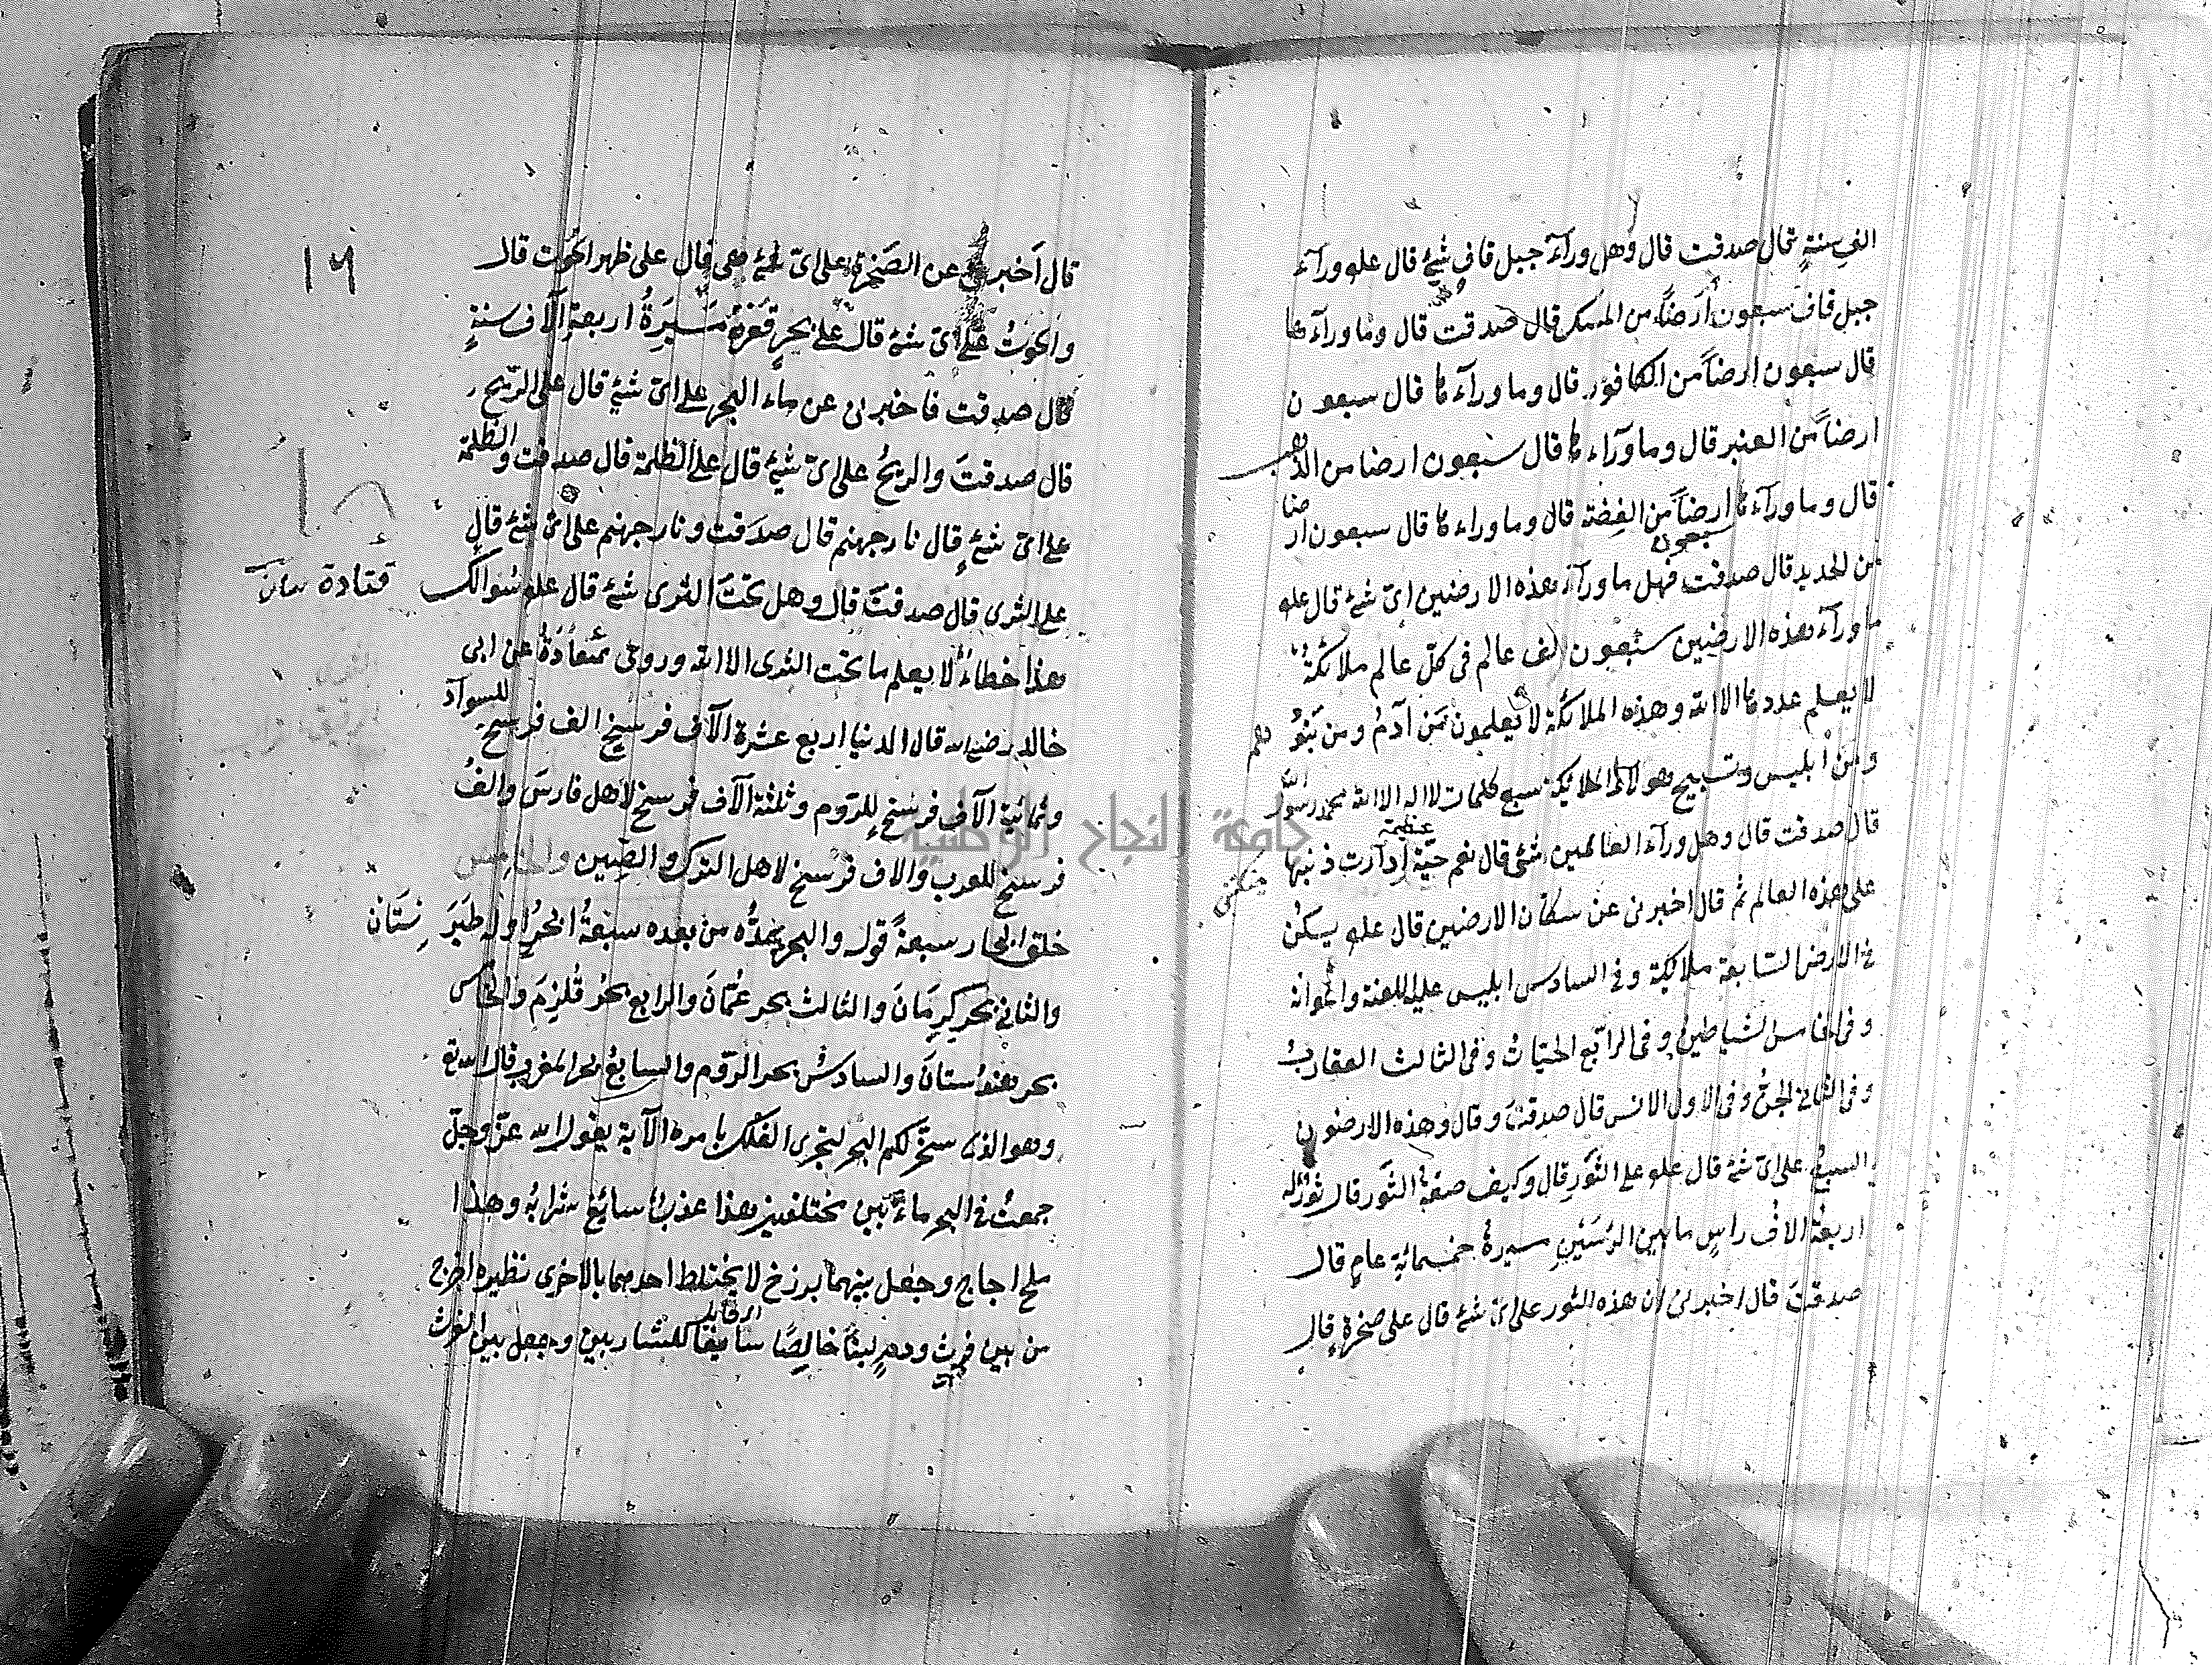 الف سنة قال صدقت قال وهل ورآء جبل قاف شئ قال علم ورآء
جبل قاف سبعون أرضاً من المسك قال صدقت قال وما ورآء ها
قال سبعون ارضاً من الكافور قال وما ورآء ها قال سبعون
ارضاً من العنبر قال وما ورآء ها قال سبعون ارضا من الذهب
قال وما ورآء ها سبعون ارضاً من الفضة قال وما وراء ها قال سبعون ارضا
من الحديد قال صدقت فهل ما ورآء هذه الارضين اىّ شئ قال علم
ما ورآء هذه الارضين سبعون الف عالم فى كلّ عالم ملائكة
لا يعلم عدد ها الا الله وهذه الملائكة لا يعلمون من آدم ومن بنو هم
ومن ابليس وتسبيح هولاء الملائكة سبع كلمات لا اله الا الله محمد رسول الله
قال صدقت قال وهل ورآء العالمين شئ قال نعم حيّة عظيمة ادآرت ذنبها
على هذه العالم ثم قال اخبرنى عن سكان الارضين قال علم يسكن
فى الارض السابعة ملائكة وفى السادس ابليس عليه اللعنة واخوانه
وفى الخامس الشياطين وفى الرابع الحيّات وفى الثالث العقارب
وفى الثانى الجنّ وفى الاول الانس قال صدقت وقال وهذه الارضون
السبع على اىّ شئ قال علم على الثور قال وكيف صفة الثور قال ثور له
اربعة الاف راس ما بين الرأسين مسيرة خمسمائة عام قال
صدقت قال اخبرنى ان هذه الثور على اىّ شئ قال على صخرة قال
١٦
قال أخبرنى عن الصخرة على اىّ شئ هى قال على ظهر الحوت قال
والحوت على اىّ شئ قال على بحر قعره مسيرة اربعة آلاف سنة
قال صدقت فاخبرنى عن ماء البحر على اىّ شئ قال على الريح
قال صدقت والريح على اىّ شئ قال على الظلمة قال صدقت والظلمة
على اىّ شئ قال نار جهنم قال صدقت ونار جهنم على اىّ شئ قال
على الثرى قال صدقت قال وهل تحت الثرى شئ قال علم سوالك
قتادة
هذا خطاء لا يعلم ما تحت الثرى الا الله وروى عن ابى
خالد رضى الله قال الدنيا اربع عشرة آلاف فرسخ الف فرسخ للسوآد
وثمانية آلاف فرسخ للروم وثلثة آلاف فرسخ لاهل فارس والف
فرسخ للعرب والاف فرسخ لاهل الترك والصين
خلق البحار سبعة قوله والبحر يمدّه من بعده سبعة ابحر اوله طبرستان
والثانى بحر كرمان والثالث بحر عمان والرابع بحر قلزم والخامس
بحر هندستان والسادس بحر الروم والسابع بحر المغرب قال الله تع
وهو الذى سخّر لكم البحر لتجرى الفلك بامره الآية يقول الله عزّ وجلّ
جمعت فى البحر مائين مختلفين هذا عذب سائغ شرابه وهذا
ملح اجاج وجعل بينهما برزخ لا يختلط احدهما بالاخرى نظيره اخرج
من بين فرث ودم لبناً خالصًا سايغا للشاربين وجعل بين الفرث
جامعة النجاح الوطنية